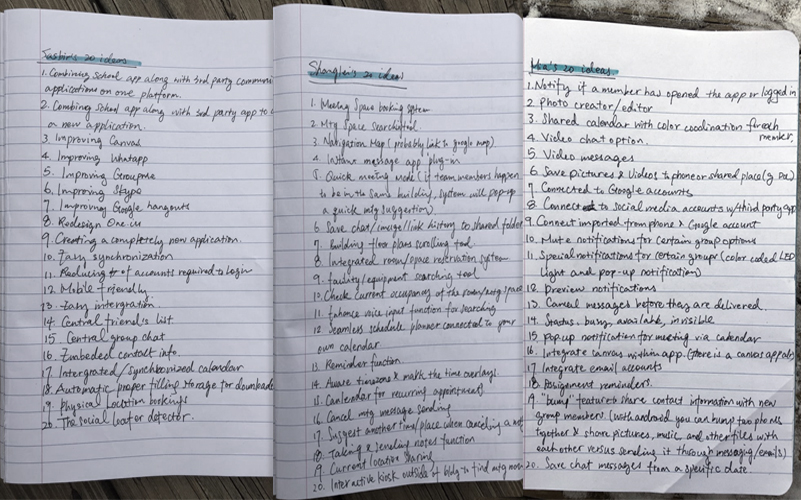 Jasbir's 20 ideas
1. Combining School app along with 3rd party communi
applications on one platform.
2. Combing School app along with 3rd party app to c
a new application.
3. Improving Canvas
4. Improving Whatapp
5. Improving Groupme
6. Improving Skype
7. Improving Google hangouts
8. Redesign One.iu
9. Creating a completely new application.
10. Easy synchronization
11. Reducing # of accounts required to login
12. Mobile friendly
13. Easy intergration
14. Central friend's list
15. Central group chat
16. Embeded contact info.
17. Intergrated/synchronized calendar
18. Automatic proper filling storage for download
19. Physical Location bookings
20. The social locator detector.
Shanglei's 20 ideas
1. Meeting Space booking system
2. Mtg Space searching tool
3. Navigation Map (probably link to google map)
4. Instant message app plug-in
5. Quick meeting Mode (if team members happen
to be in the same building, system will pop-up
a quick mtg suggestion)
6. Save chat/image/link history to shared folder
7. Building floor plans scrolling tool
8. Integrated room/space reservation system
9. facility/equipment searching tool
10. Check current occupancy of the room/mtg space
11. Enhance voice input function for searching
12. Seamless schedule planner connected to your
own calendar
13. Reminder function
14. Aware timezone & mark the time overlays
15. Canlendar for recurring appointment)
16. Cancel mtg message sending
17. Suggest another time/place when canceling a mtg
18. Taking & sending notes function
19. Current location sharing
20. Interactive kiosk outside of bldg to find mtg room
Mia's 20 ideas
1. Notify if a member has opened the app or logged in
2. Photo creator/editor
3. Shared calendar with color coodination for each
member.
4. Video chat option.
5. Video messages
6. Save pictures & Videos to phone or shared place (g Doc)
7. Connected to Google accounts
8. Connect to social media accounts w/ third party app
9. Connect imported from phone & Google account
10. Mute notifications for certain group options
11. Special notifications for certain groups (color coded LED
Light and pop-up notification)
12. Preview notifications
13. Cancel messages before they are delivered.
14. Status, busy, available, invisible
15. Pop up notification for meeting via calendar
16. Integrate canvas within app. (there is a canvas app already)
17. Integrate email accounts
18. Assignment reminders.
19. "bump" feature to share contact information with new
group members. (with android you can bump two phones
together & share pictures, music, and other files with
each other versus sending it through messaging/emails)
20. Save chat messages from a specific date.